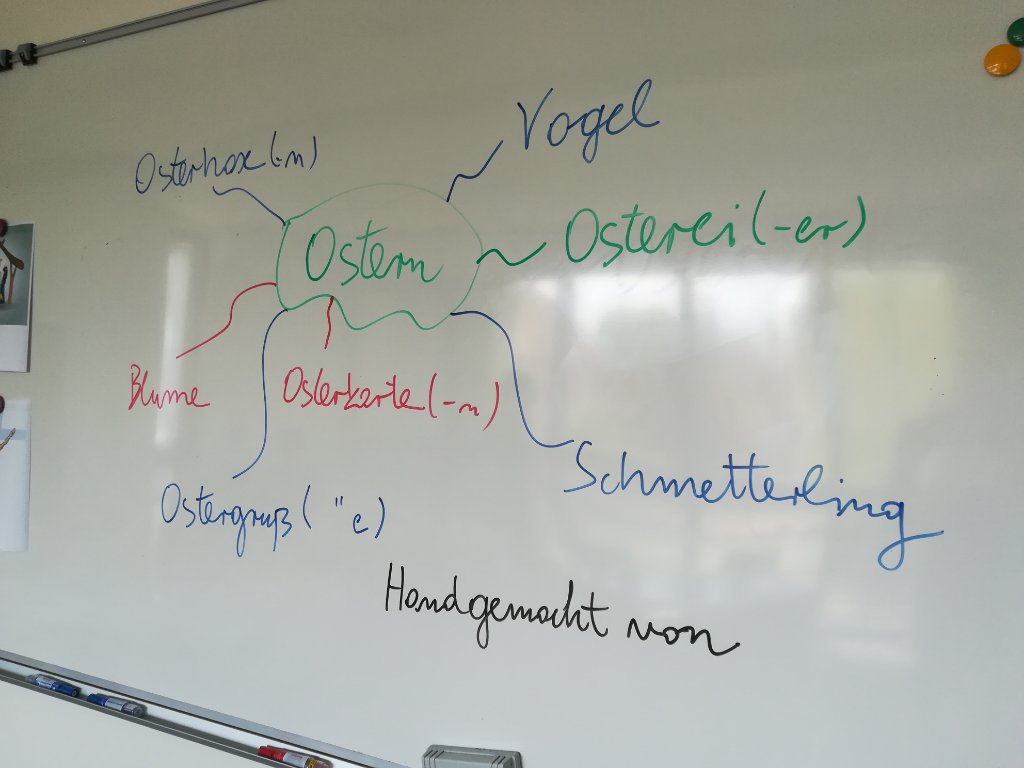 Vogel
Osterhase (-n)
Osterei (-er)
Ostern
Blume
Osterkarte (-n)
Schmetterling
Ostergruß ( "e)
Handgemacht von